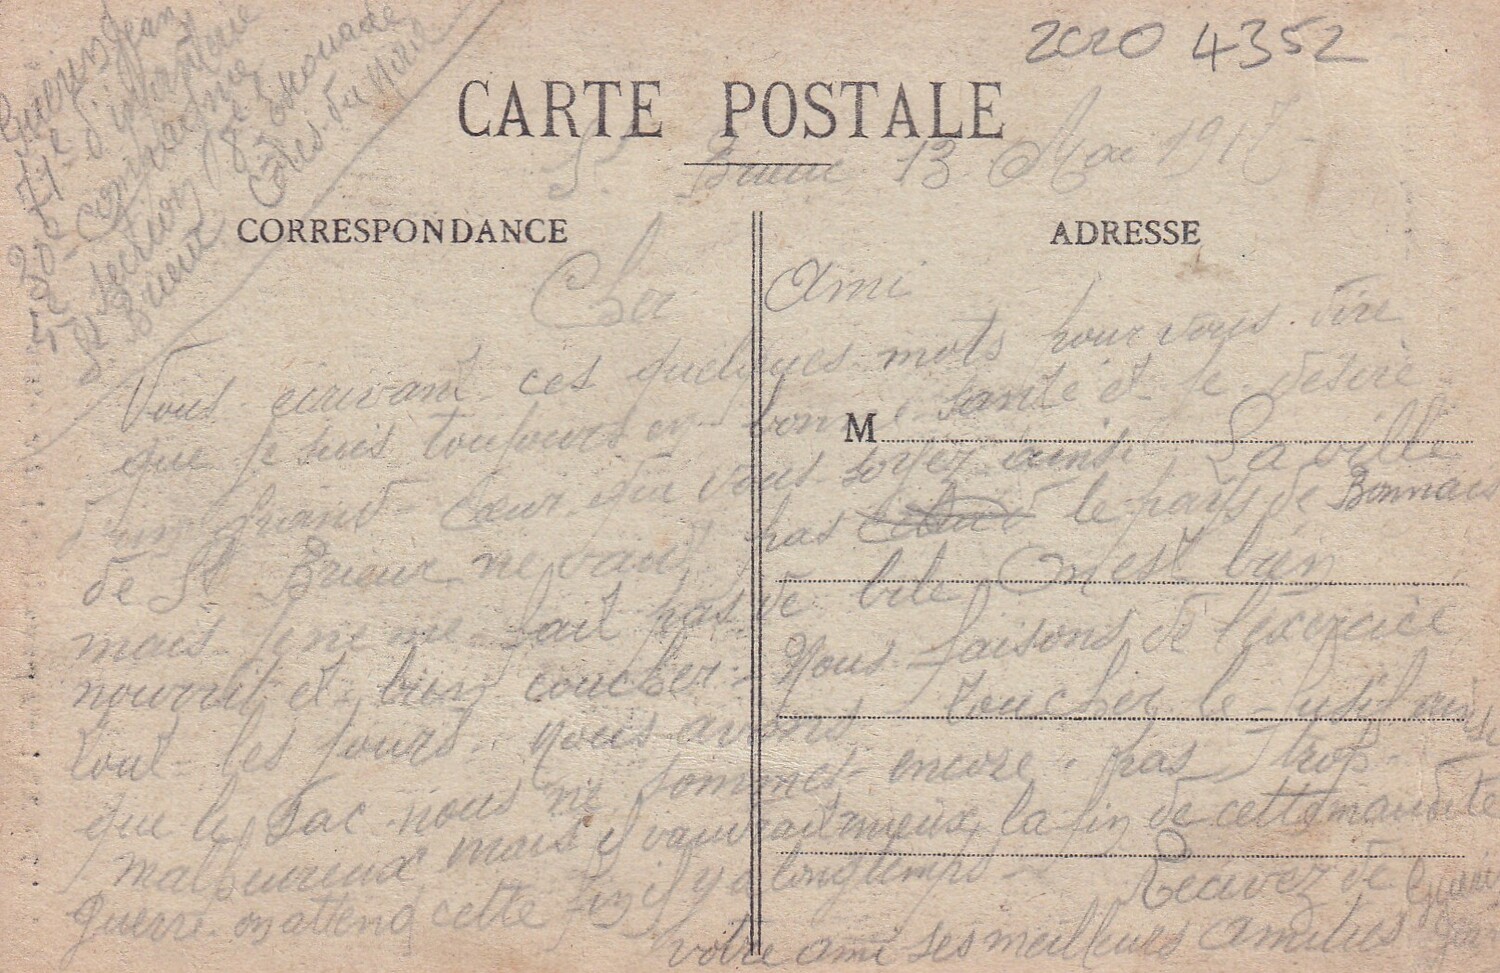 2020 4352
CARTE POSTALE
Guerin Jean
71e d'infanterie
30e Compagnie
5e section 18e Escouade
St Brieuc Côtes-du-Nord
St Brieuc 13 Mai 1917
CORRESPONDANCE
ADRESSE
Cher Ami
Vous écrivant ces quelques mots pour vous dire
que je suis toujours en bonne santé et je désire
d'un grand cœur que vous soyez ainsi La ville
de St Brieuc ne vaut pas le pays de
M
mais je ne me fait pas de bile On est bien
nourrit et bien coucher Nous faisons de l'exercice
tout les jours. Nous avons toucher le fusil ainsi
que le sac nous ne sommes encore pas trop
malheureux mais il vaudrait mieux la fin de cette maudite
guerre on attend cette fin il y a longtemps
Recevez de Guerin Jean
votre ami ses meilleurs amitiés